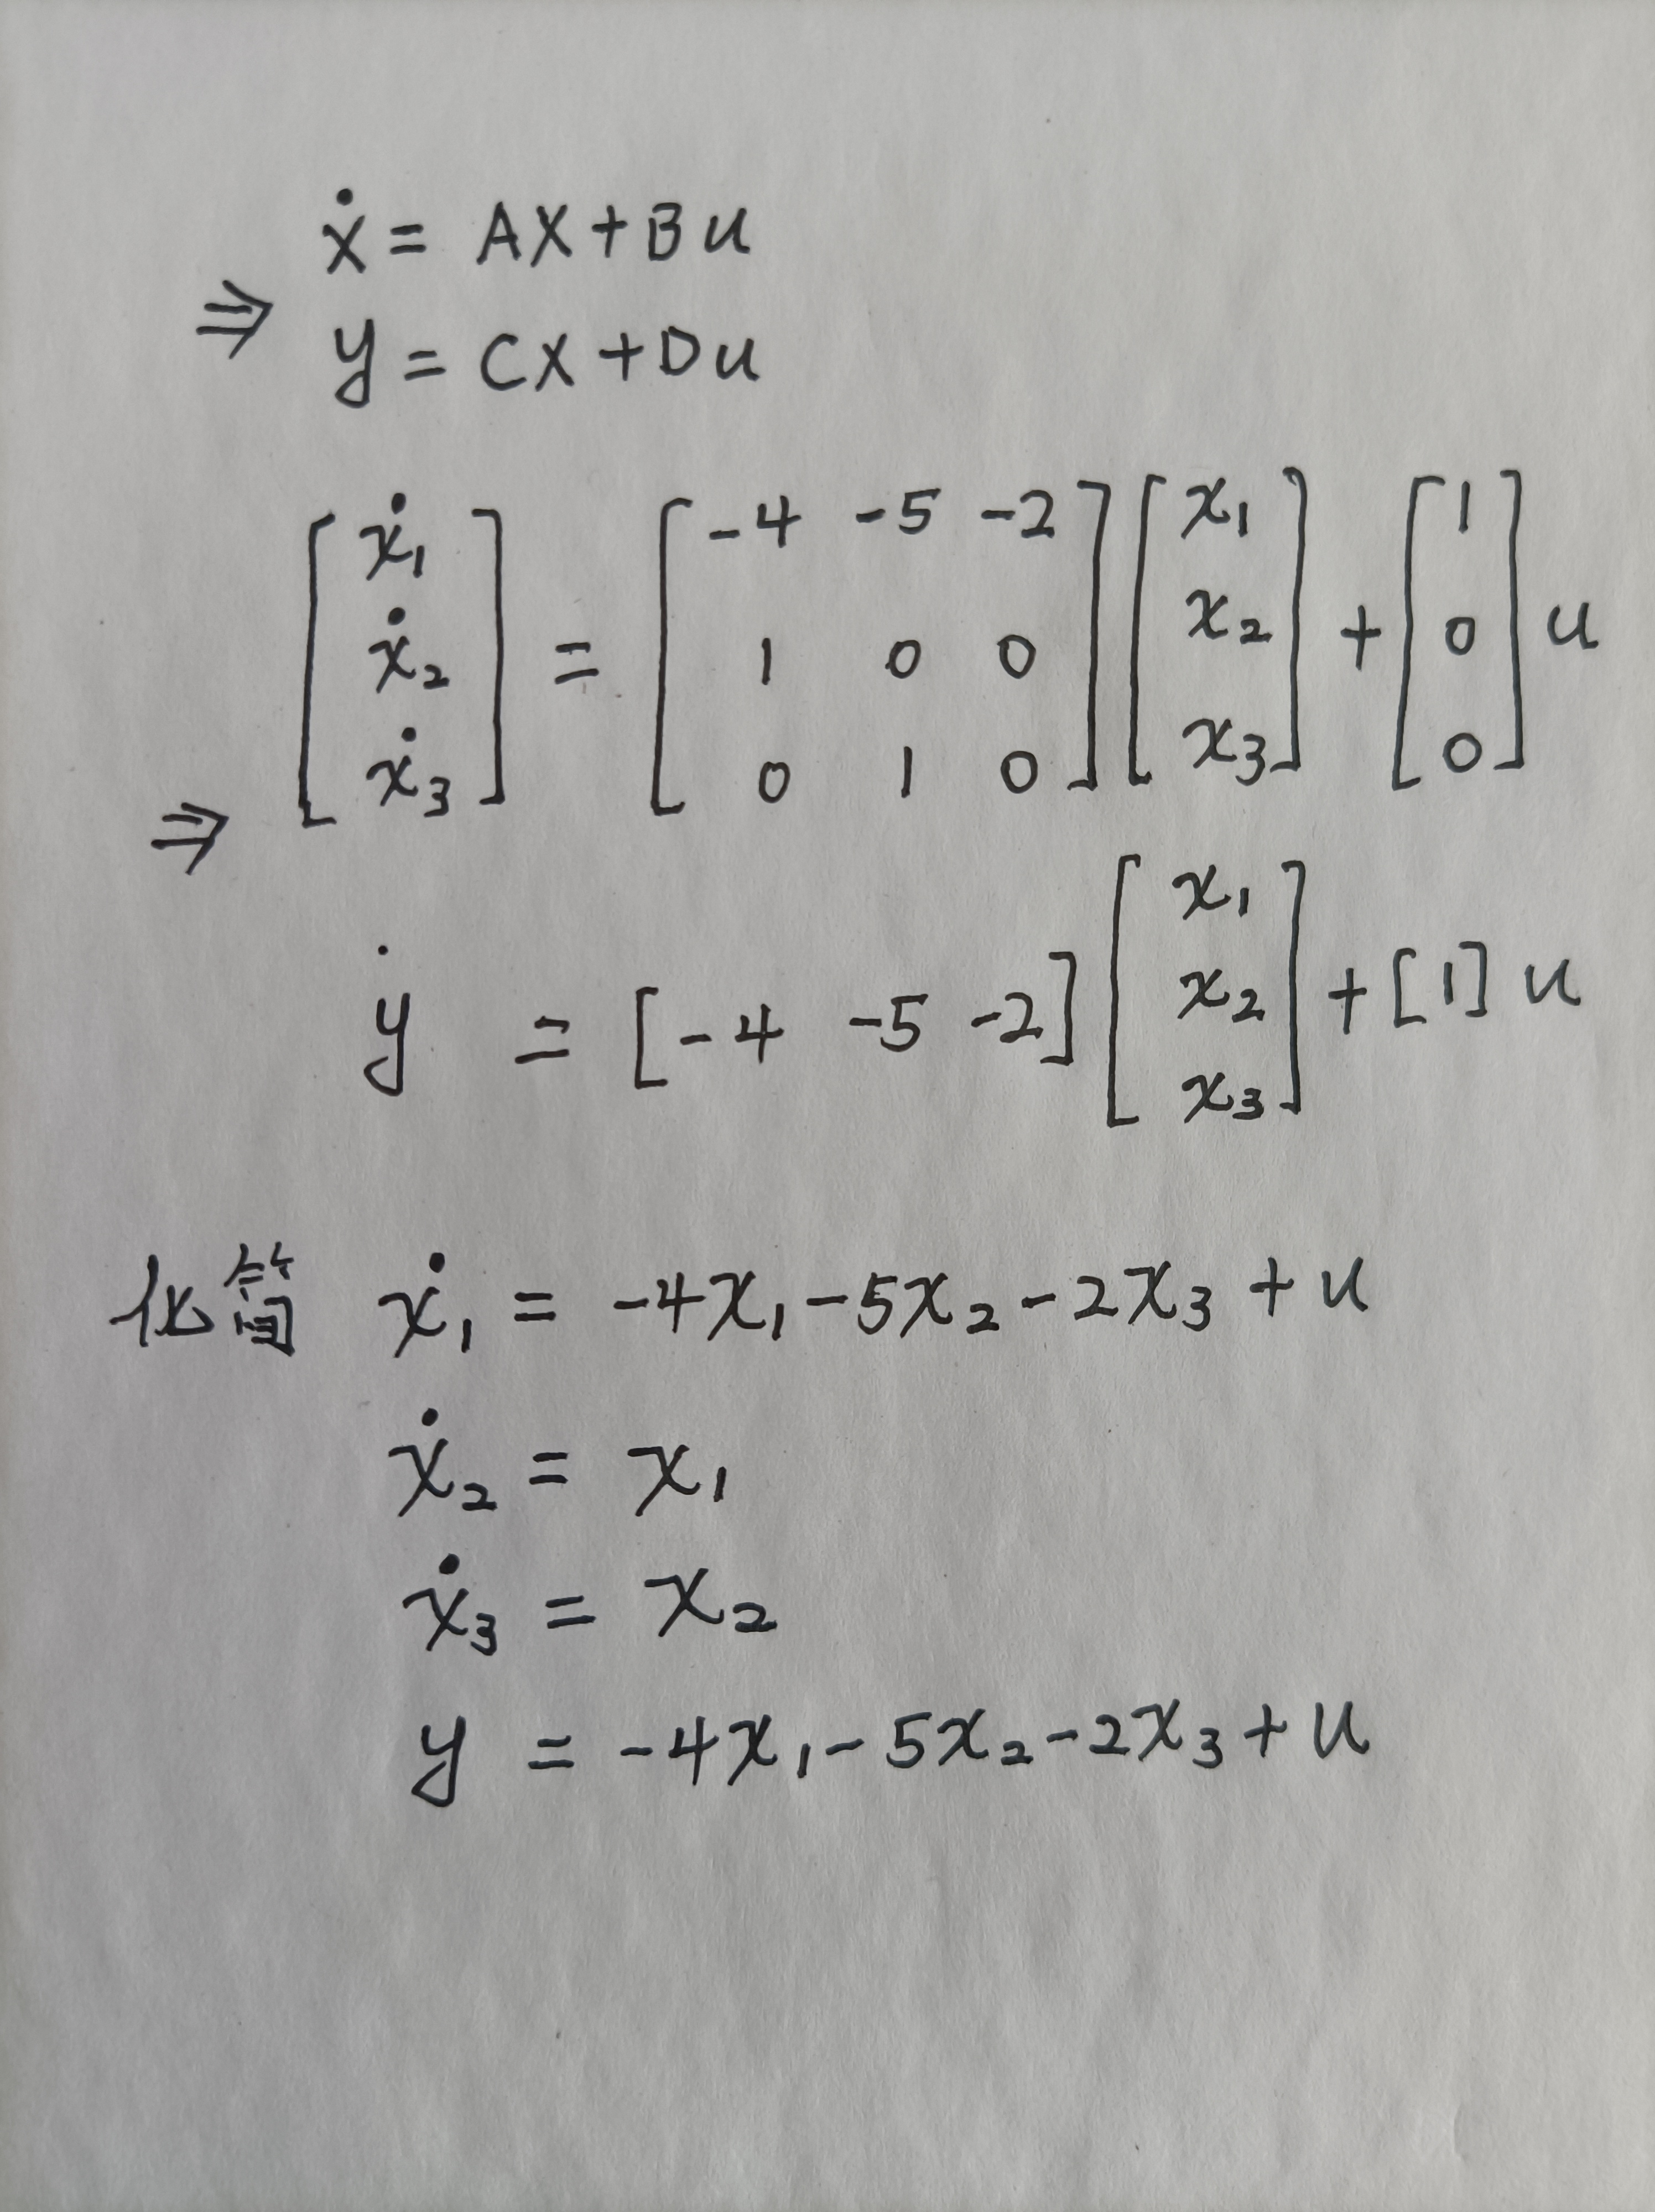 ẋ = AX + Bu
⇒
y = CX + Du
[ẋ₁ ẋ₂ ẋ₃] = [-4 -5 -2; 1 0 0; 0 1 0] [x₁ x₂ x₃] + [1 0 0] u
⇒
ẏ = [-4 -5 -2] [x₁ x₂ x₃] + [1] u
化简 ẋ₁ = -4x₁ - 5x₂ - 2x₃ + u
ẋ₂ = x₁
ẋ₃ = x₂
y = -4x₁ - 5x₂ - 2x₃ + u